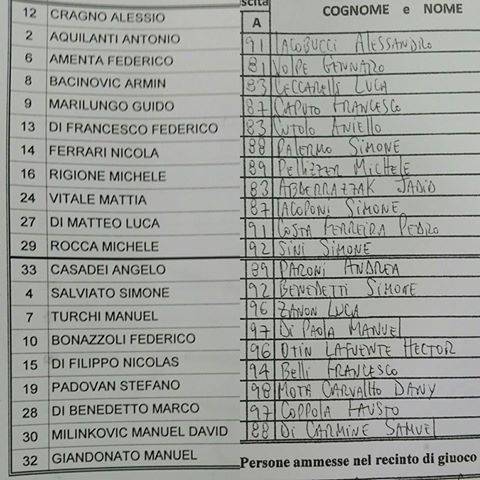 12 CRAGNO ALESSIO
2 AQUILANTI ANTONIO
6 AMENTA FEDERICO
8 BACINOVIC ARMIN
9 MARILUNGO GUIDO
13 DI FRANCESCO FEDERICO
14 FERRARI NICOLA
16 RIGIONE MICHELE
24 VITALE MATTIA
27 DI MATTEO LUCA
29 ROCCA MICHELE
33 CASADEI ANGELO
4 SALVIATO SIMONE
7 TURCHI MANUEL
10 BONAZZOLI FEDERICO
15 DI FILIPPO NICOLAS
19 PADOVAN STEFANO
28 DI BENEDETTO MARCO
30 MILINKOVIC MANUEL DAVID
32 GIANDONATO MANUEL
scita
A COGNOME e NOME
91 IACOBUCCI ALESSANDRO
81 VOLPE GENNARO
83 CECCARELLI LUCA
87 CAPUTO FRANCESCO
83 CUTOLO ANIELLO
88 PALERMO SIMONE
89 PELLIZZER MICHELE
83 ABBERRAZZAK JADID
87 IACOPONI SIMONE
91 COSTA FERREIRA PEDRO
92 SINI SIMONE
89 PARONI ANDREA
92 BENEDETTI SIMONE
96 ZANON LUCA
97 DI PAOLA MANUEL
96 OTIN LAFUENTE HECTOR
94 BELLI FRANCESCO
98 MOTA CARVALHO DANY
97 COPPOLA FAUSTO
88 DI CARMINE SAMUEL
Persone ammesse nel recinto di giuoco